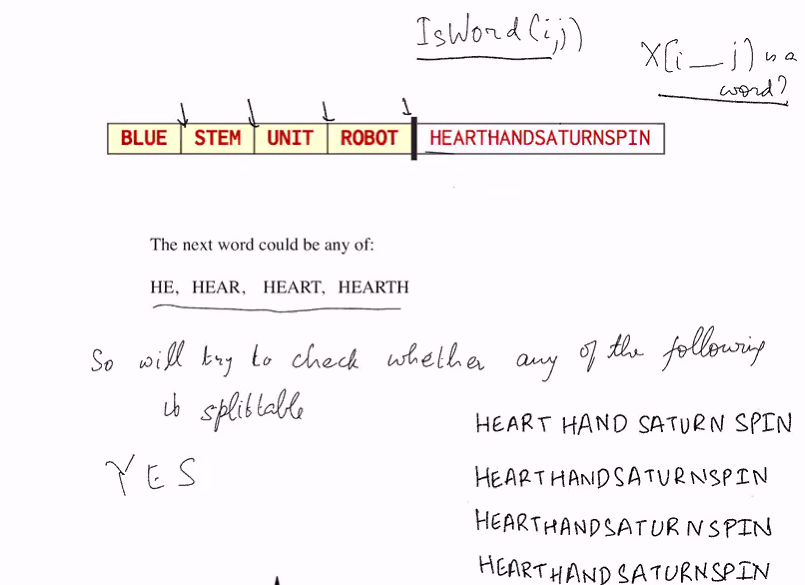 IsWord(i,j)
X[i — j] is a
word?
BLUE STEM UNIT ROBOT HEARTHANDSATURNSPIN
The next word could be any of:
HE, HEAR, HEART, HEARTH
So will try to check whether any of the following
is splittable
HEART HAND SATURN SPIN
YES
HEARTHANDSATURNSPIN
HEARTHANDSATURNSPIN
HEARTHANDSATURNSPIN